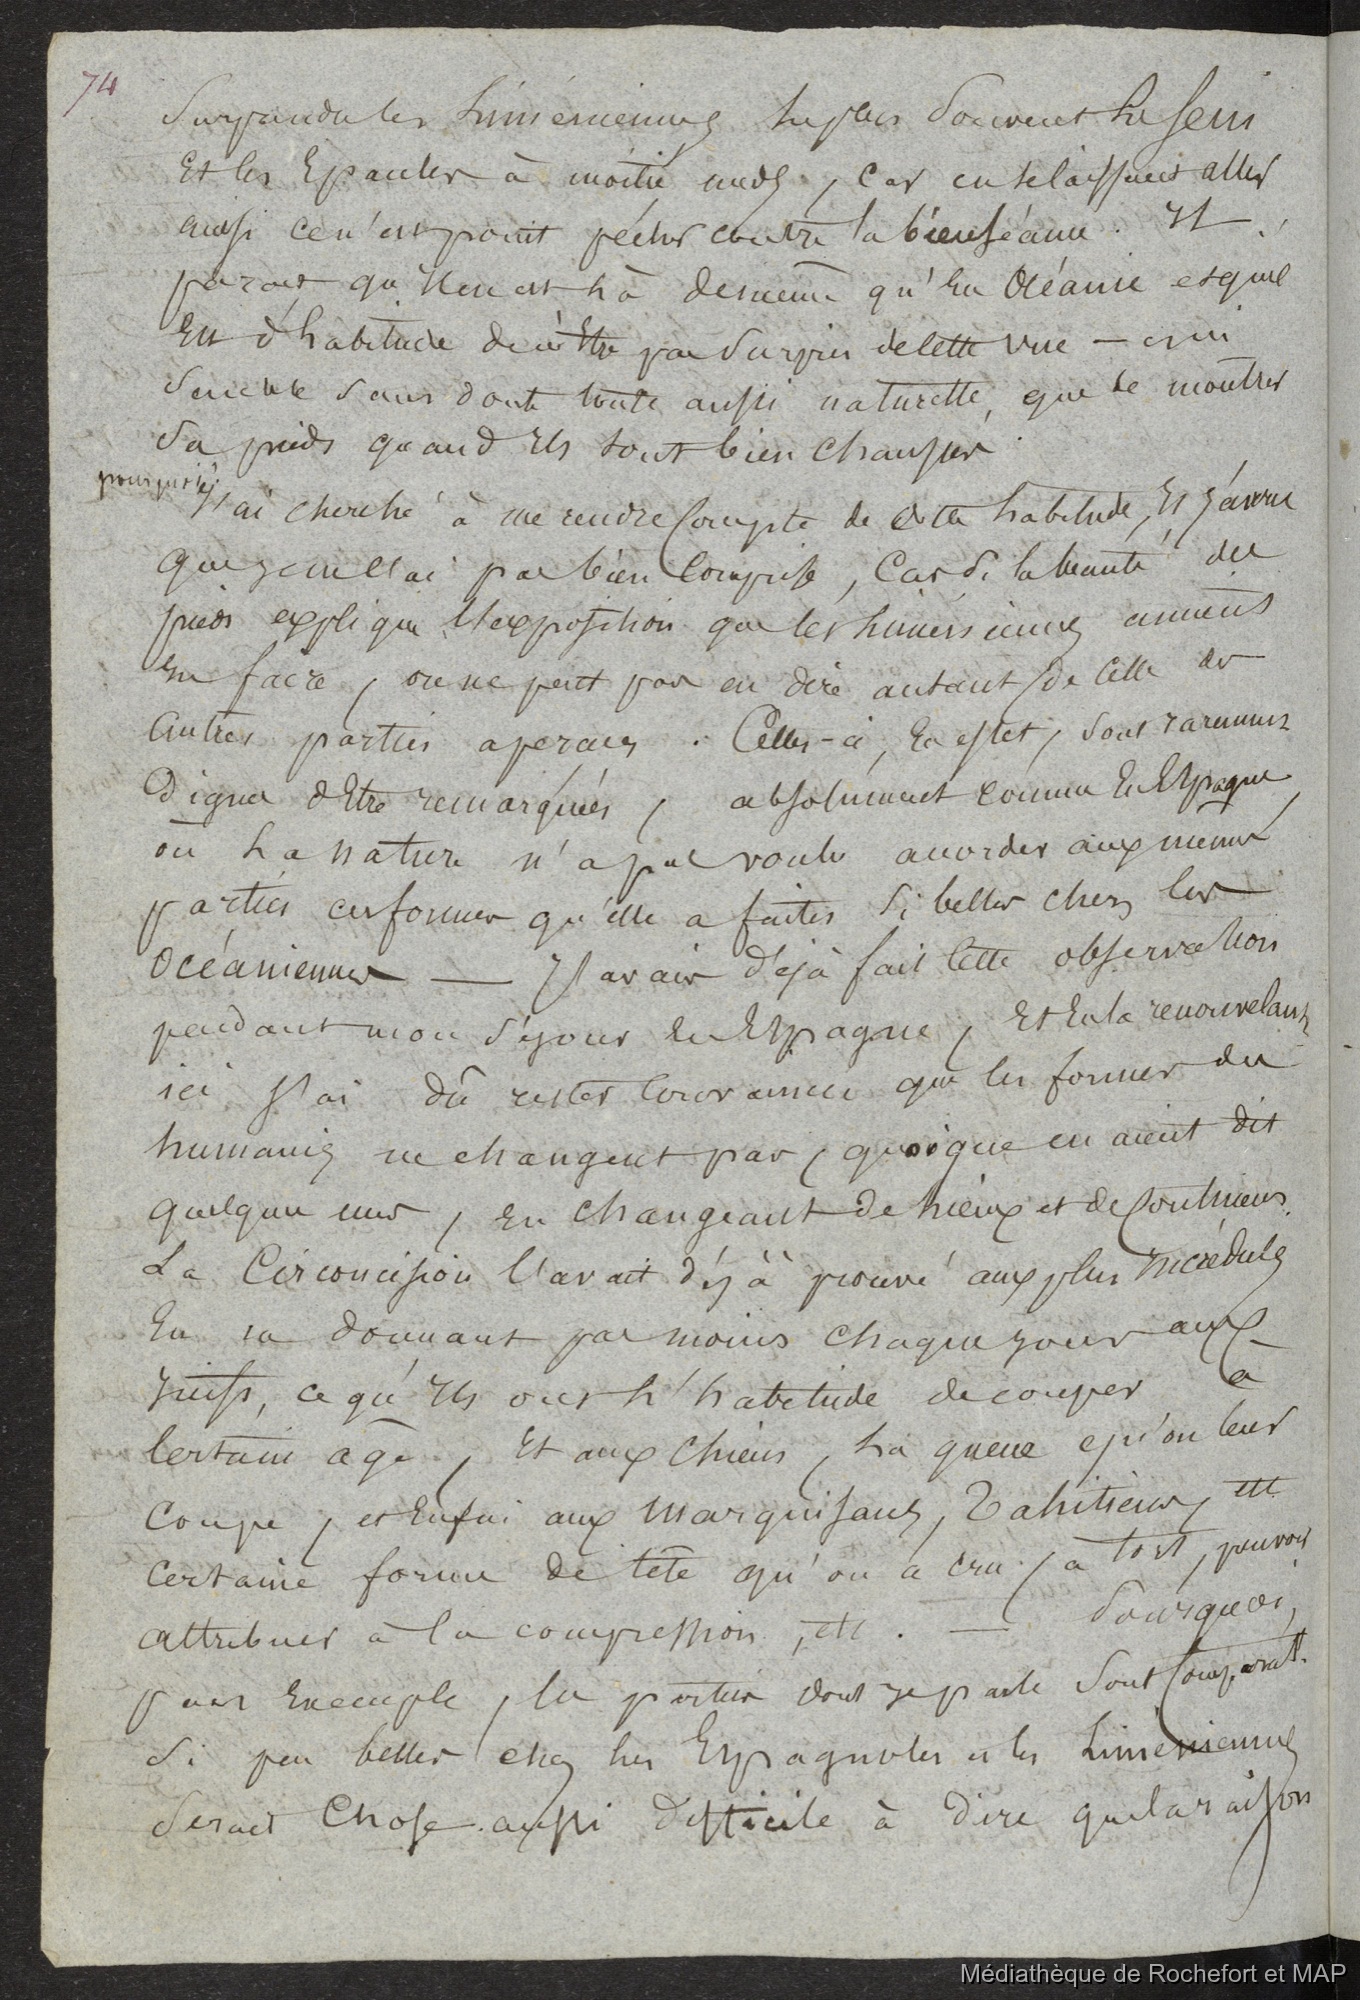 74
Surprendre les Liméniennes le plus souvent le sein
Et les Epaules à moitié nuds, car en se laissant aller
ainsi ce n'est point pécher contre la bienséance. Il
parait qu'il en est là de même qu'en Océanie et qu'il
Est d'habitude de n'être pas surpris de cette vue —
semble sans doute toute aussi naturelle, que de montrer
sa pieds quand ils sont bien chaussés.
pourquoi
J'ai cherché à me rendre compte de cette habitude, Et j'avoue
que je ne l'ai pas bien comprise, Car si la beauté des
pieds explique l'exposition que les Liméniennes aiment
En faire, on ne peut pas en dire autant de celle des
autres parties aperçues. Celles-ci, En effet, sont rarement
Dignes d'Etre remarquées, absolument comme En Espagne,
où La nature n'a pas voulu accorder aux mêmes
parties ces formes qu'elle a faites si belles chez les
Océaniennes — J'avais déjà fait cette observation
pendant mon séjour En Espagne, Et En la renouvelant
ici J'ai dû rester convaincu que les formes des
humains ne changent pas, quoique en aient dit
quelques uns, En changeant de Lieux et de Coutumes.
La Circoncision l'avait déjà prouvé aux plus Incrédules
En ne donnant pas moins chaque jour aux
Juifs, ce qu'Ils ont L'habitude de couper à
Certain age, Et aux Chiens, La queue qu'on leur
coupe, et Enfin aux Marquisans, Tahitiens, etc
certaine forme de tête qu'on a cru, à tort, pouvoir
attribuer à la compression, etc. — Pourquoi,
par Exemple, les parties dont je parle sont comparat.
si peu belles chez les Espagnoles et les Liméniennes
serait Chose aussi difficile à dire que la raison
Médiathèque de Rochefort et MAP